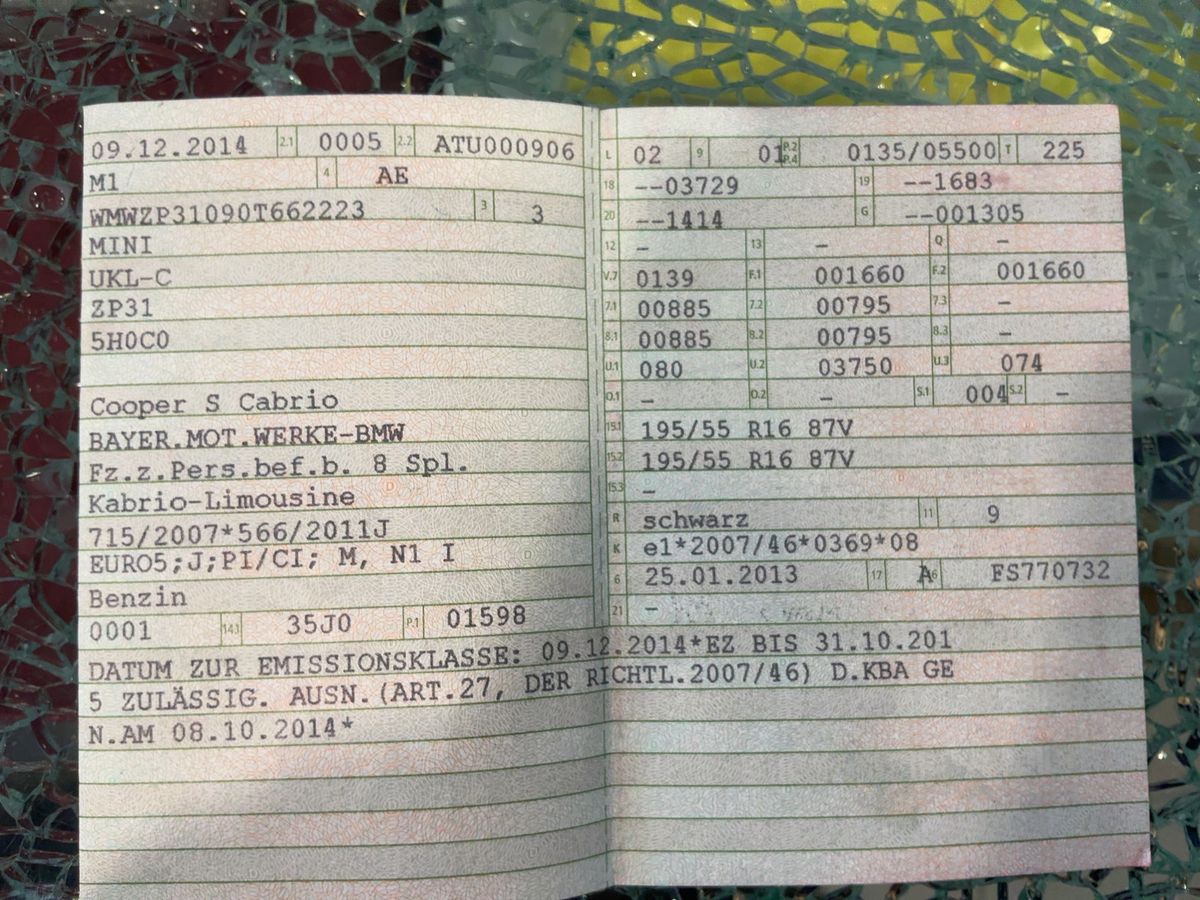 09.12.2014 2.1 0005 2.2 ATU000906
M1 4 AE
WMWZP31090T662223 3 3
MINI
UKL-C
ZP31
5H0C0
Cooper S Cabrio
BAYER.MOT.WERKE-BMW
Fz.z.Pers.bef.b. 8 Spl.
Kabrio-Limousine
715/2007*566/2011J
EURO5;J;PI/CI; M, N1 I
Benzin
0001 14.1 35J0 P.1 01598
L 02 9 01 P.2 P.4 0135/05500 T 225
18 --03729 19 --1683
20 --1414 G --001305
12 – 13 – Q –
V.7 0139 F.1 001660 F.2 001660
7.1 00885 7.2 00795 7.3 –
8.1 00885 8.2 00795 8.3 –
U.1 080 U.2 03750 U.3 074
O.1 – O.2 – S.1 004 S.2 –
15.1 195/55 R16 87V
15.2 195/55 R16 87V
15.3 –
R schwarz 11 9
K e1*2007/46*0369*08
6 25.01.2013 17 A 16 FS770732
21 –
DATUM ZUR EMISSIONSKLASSE: 09.12.2014*EZ BIS 31.10.201
5 ZULÄSSIG. AUSN.(ART.27, DER RICHTL.2007/46) D.KBA GE
N.AM 08.10.2014*